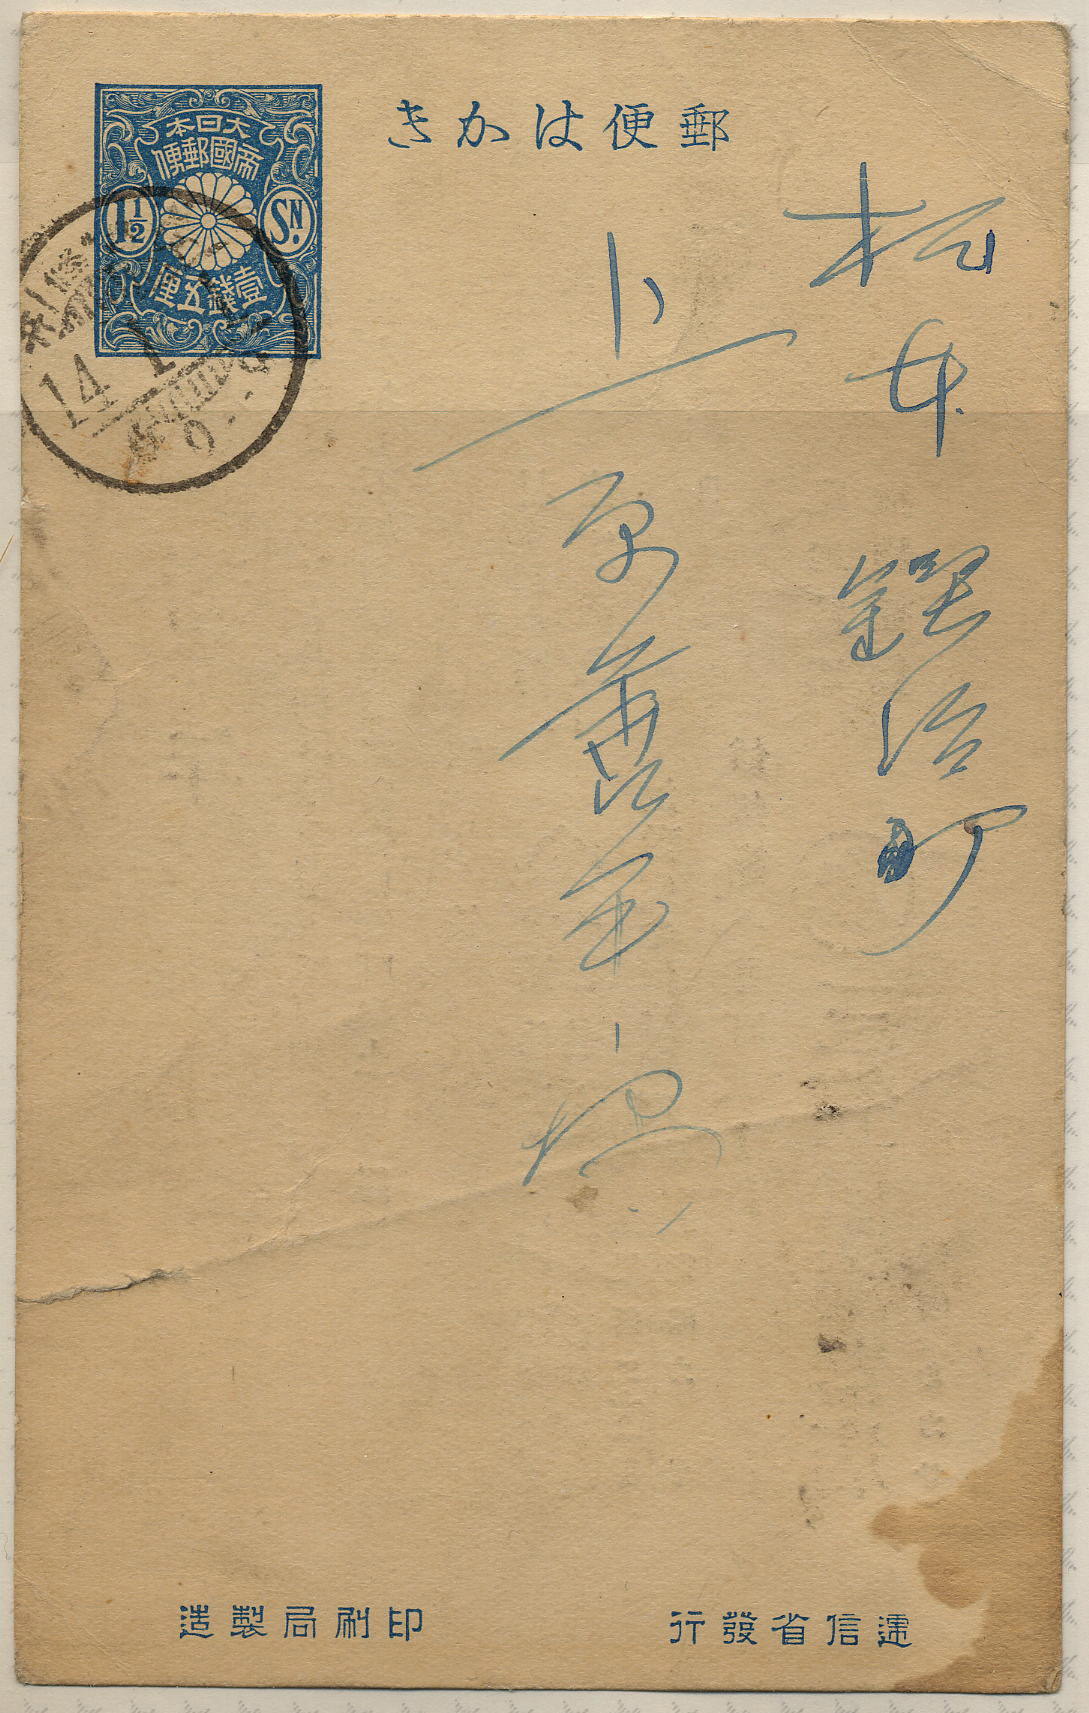 郵便はかき
大日本
帝國郵便
1½ SN.
壹錢五厘
14 1
松本鍛治町
上原 様
遞信省發行
印刷局製造